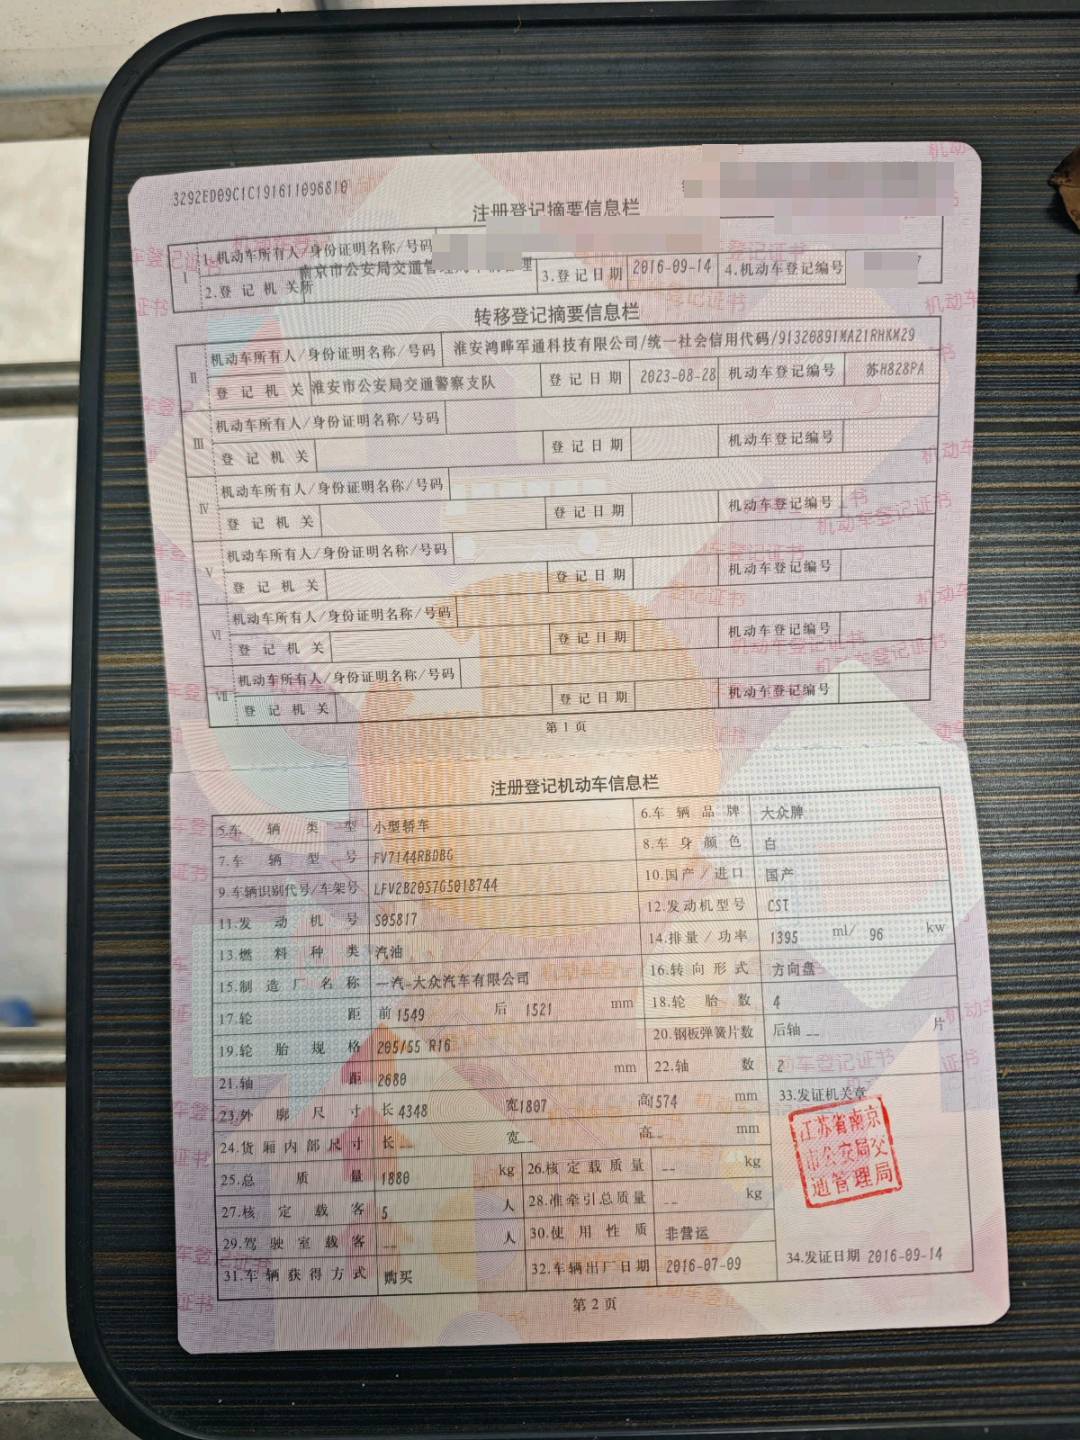 3292ED09C1C191611096810
注册登记摘要信息栏
Ⅰ 1.机动车所有人/身份证明名称/号码
南京市公安局交通管理局车辆管理所
2.登记机关 3.登记日期 2016-09-14 4.机动车登记编号
转移登记摘要信息栏
Ⅱ 机动车所有人/身份证明名称/号码 淮安鸿晔军通科技有限公司/统一社会信用代码/91320891MA21RHKM29
登记机关 淮安市公安局交通警察支队 登记日期 2023-08-28 机动车登记编号 苏H828PA
Ⅲ 机动车所有人/身份证明名称/号码
登记机关 登记日期 机动车登记编号
Ⅳ 机动车所有人/身份证明名称/号码
登记机关 登记日期 机动车登记编号
Ⅴ 机动车所有人/身份证明名称/号码
登记机关 登记日期 机动车登记编号
Ⅵ 机动车所有人/身份证明名称/号码
登记机关 登记日期 机动车登记编号
Ⅶ 机动车所有人/身份证明名称/号码
登记机关 登记日期 机动车登记编号
第1页
注册登记机动车信息栏
5.车辆类型 小型轿车 6.车辆品牌 大众牌
7.车辆型号 FV7144RBDBG 8.车身颜色 白
9.车辆识别代号/车架号 LFV2B20S7G5018744 10.国产/进口 国产
11.发动机号 S05817 12.发动机型号 CST
13.燃料种类 汽油 14.排量/功率 1395 ml/ 96 kw
15.制造厂名称 一汽-大众汽车有限公司 16.转向形式 方向盘
17.轮距 前 1549 后 1521 mm 18.轮胎数 4
19.轮胎规格 205/55 R16 20.钢板弹簧片数 后轴 -- 片
21.轴距 2680 mm 22.轴数 2
23.外廓尺寸 长 4348 宽 1807 高 1574 mm 33.发证机关章
24.货厢内部尺寸 长 -- 宽 -- 高 -- mm
江苏省南京市公安局交通管理局
25.总质量 1880 kg 26.核定载质量 -- kg
27.核定载客 5 人 28.准牵引总质量 -- kg
29.驾驶室载客 -- 人 30.使用性质 非营运
31.车辆获得方式 购买 32.车辆出厂日期 2016-07-09 34.发证日期 2016-09-14
第2页